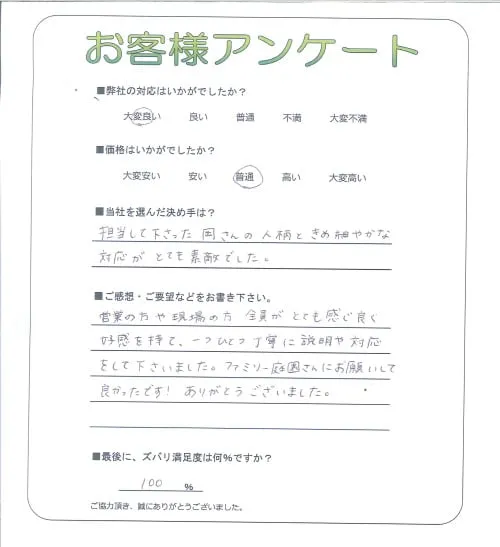 お客様アンケート
■弊社の対応はいかがでしたか？
大変良い 良い 普通 不満 大変不満
■価格はいかがでしたか？
大変安い 安い 普通 高い 大変高い
■当社を選んだ決め手は？
担当して下さった 岡さんの 人柄と きめ細やかな
対応が とても素敵でした。
■ご感想・ご要望などをお書き下さい。
営業の方や現場の方 全員が とても感じ良く
好感を持て、一つひとつ丁寧に説明や対応
をして下さいました。ファミリー庭園さんにお願いして
良かったです！ ありがとうございました。
■最後に、ズバリ満足度は何％ですか？
100 ％
ご協力頂き、誠にありがとうございました。